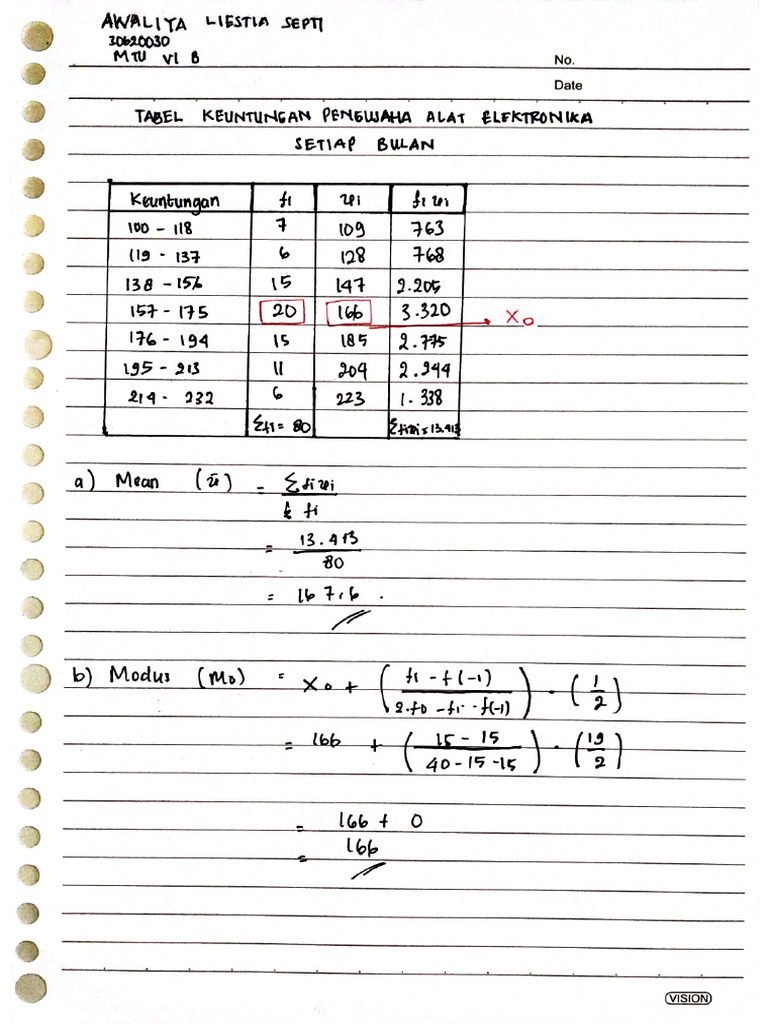 AWALIYA LIESTIA SEPTI
30620030
MTU VI B
No.
Date
TABEL KEUNTUNGAN PENGUSAHA ALAT ELEKTRONIKA
SETIAP BULAN
Keuntungan fi xi fi xi
100 - 118 7 109 763
119 - 137 6 128 768
138 - 156 15 147 2.205
157 - 175 20 166 3.320 X0
176 - 194 15 185 2.775
195 - 213 11 204 2.244
214 - 232 6 223 1.338
Σfi = 80 Σfixi = 13.413
a) Mean (x̄) = Σ fi xi
Σ fi
= 13.413
80
= 167,6 .
b) Modus (Mo) = X0 + ( f1 - f(-1) / 2.f0 - f1 - f(-1) ) . ( 1/2 )
= 166 + ( 15 - 15 / 40 - 15 - 15 ) . ( 19/2 )
= 166 + 0
= 166
VISION